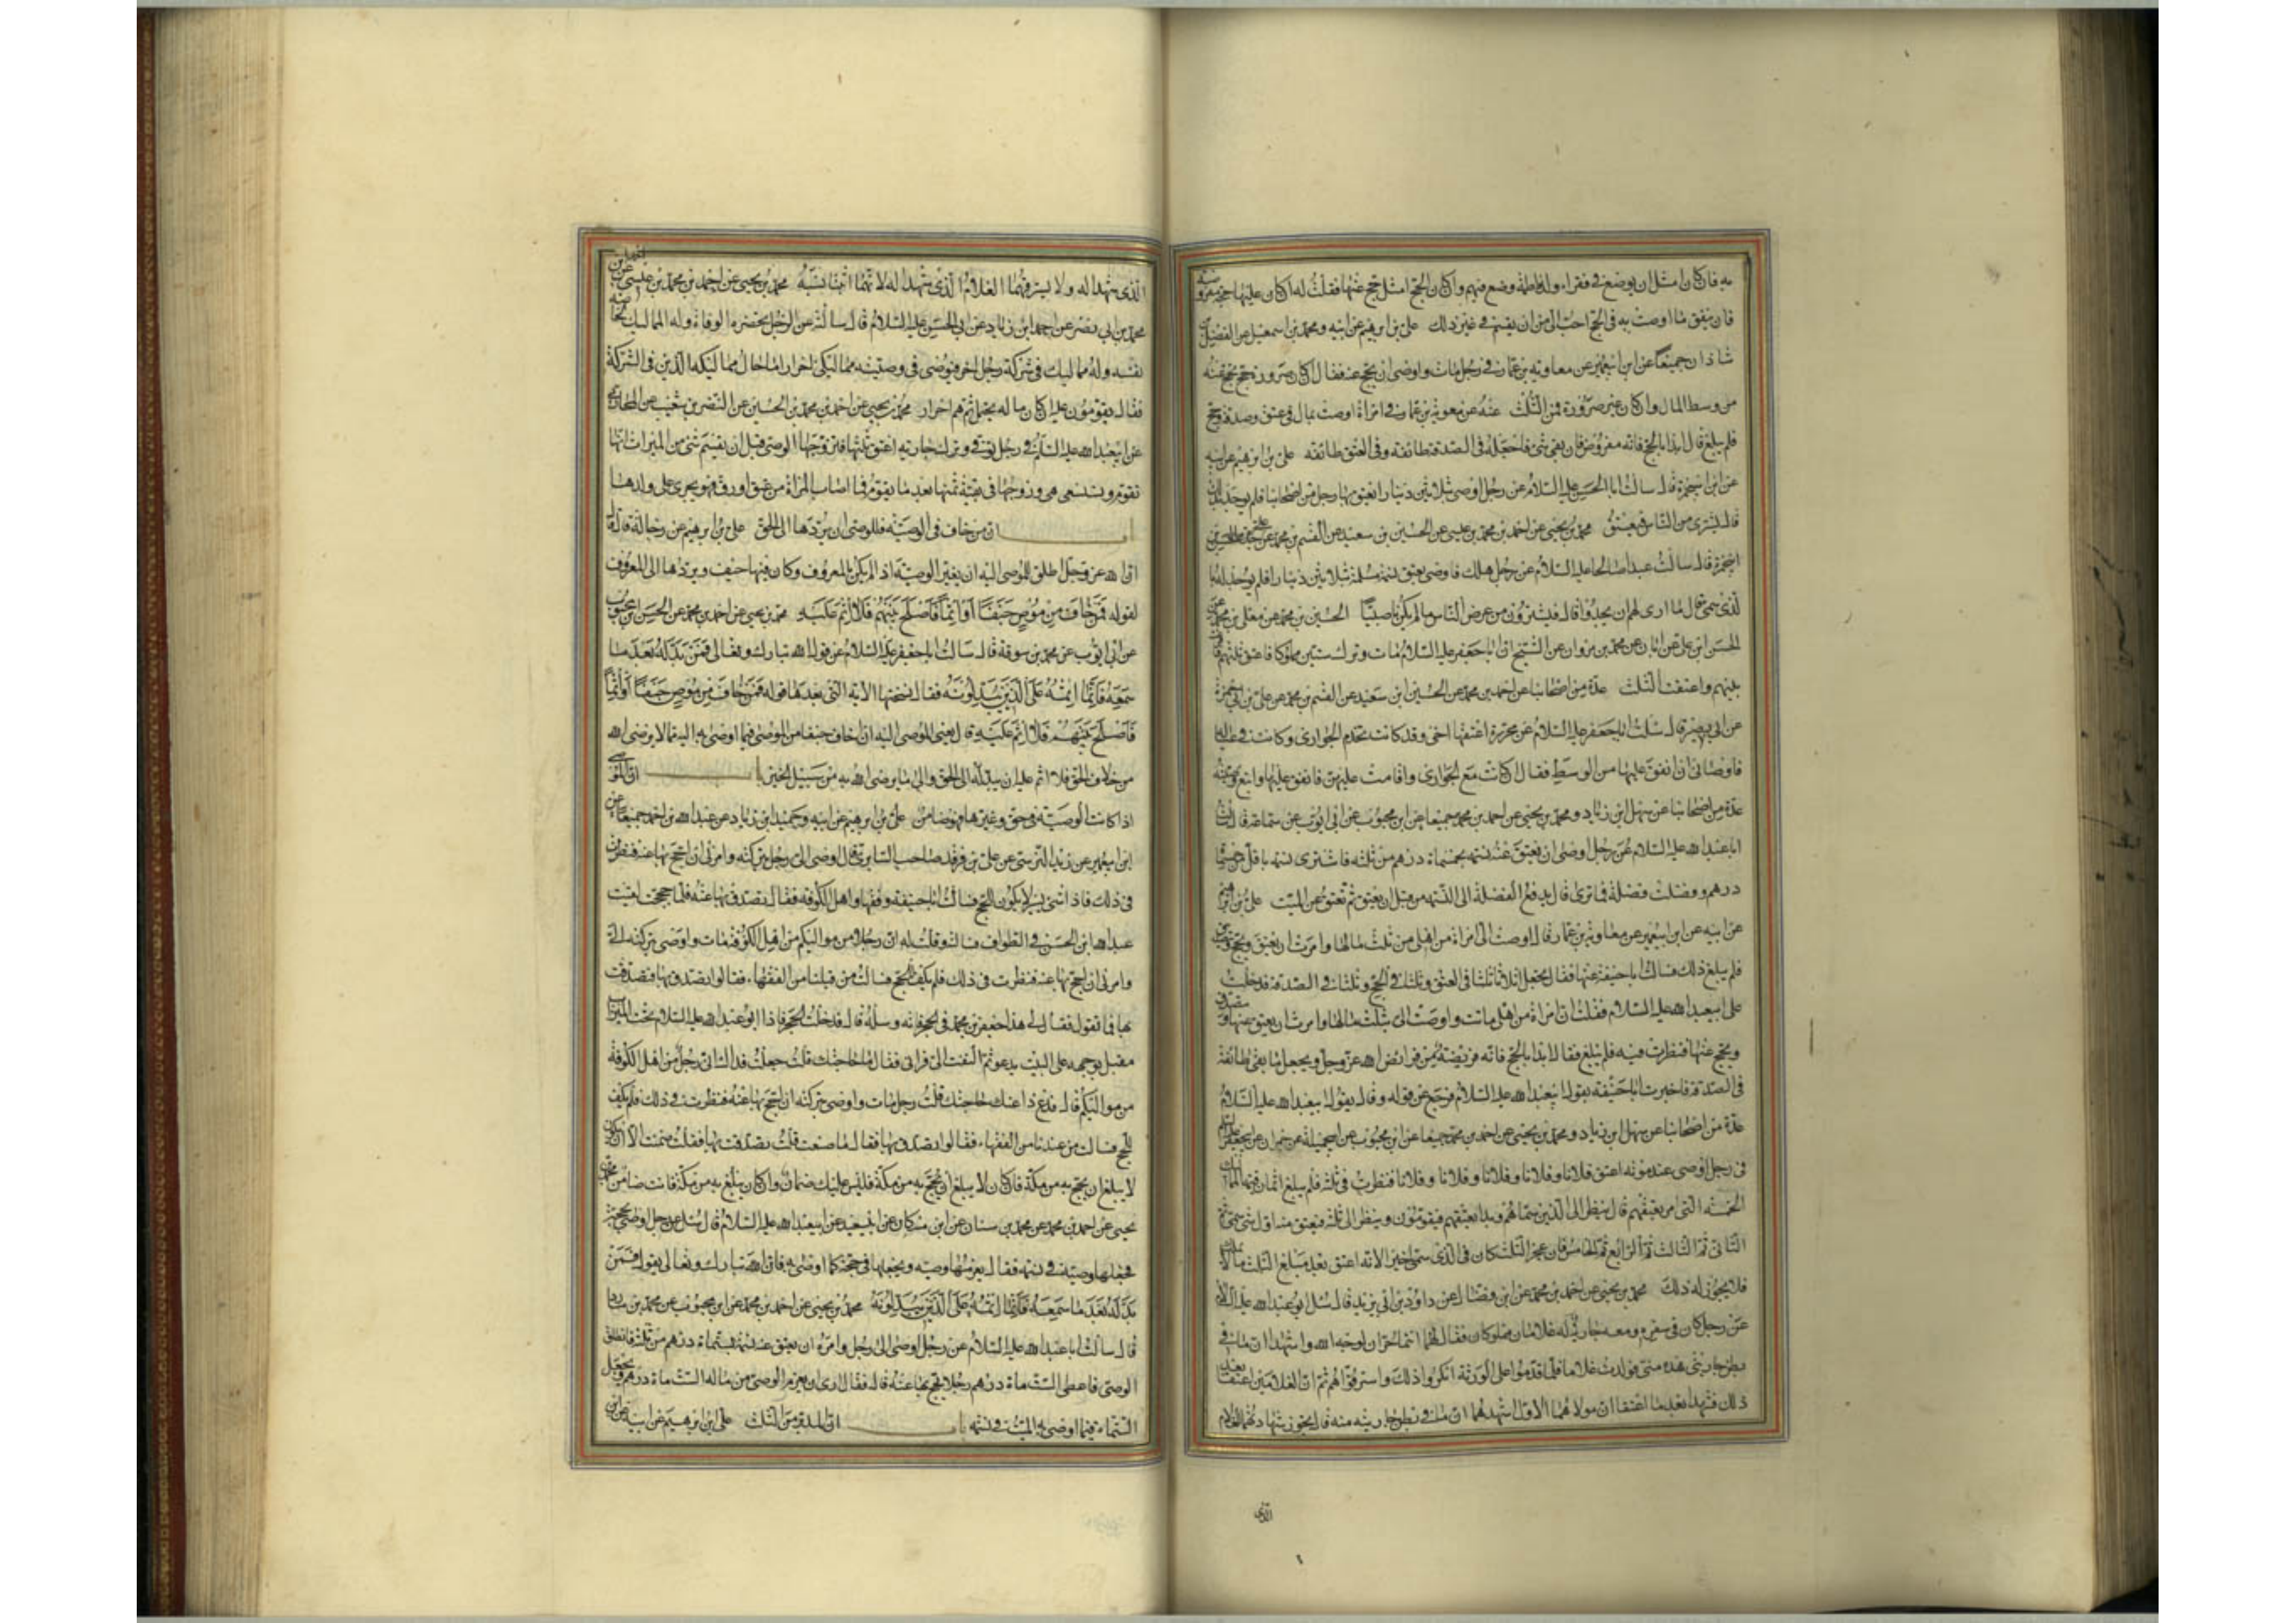 به فان كان امثل ان يوضع فى فقراء ولد فاطمة وضع فيهم وان كان الحج امثل حج عنها فقلت له ان كان عليها حجة مفروضة
فان ينفق ما اوصت به فى الحج احب الى من ان يقسم فى غير ذلك على بن ابرهيم عن ابيه ومحمد بن اسمعيل عن الفضل بن
شاذان جميعا عن ابن ابى عمير عن معاوية بن عمار فى رجل مات واوصى ان يحج عنه فقال ان كان صرورة حج عنه
من وسط المال وان كان غير صرورة فمن الثلث عنه عن معوية بن عمار فى امراة اوصت بمال فى عتق وصدقة وحج
فلم يبلغ قال ابدا بالحج فانه مفروض فان بقى شئ فاجعله فى الصدقة طائفة وفى العتق طائفة على بن ابرهيم عن ابيه
عن ابن ابى حمزة قال سالت ابا الحسن عليه السلام عن رجل اوصى بثلاثين دينارا يعتق بها رجل من اصحابنا فلم يوجد بذلك
قال يشترى من الناس فيعتق محمد بن يحيى عن احمد بن محمد بن عيسى عن الحسين بن سعيد عن القسم بن محمد عن على بن
ابى حمزة قال سالت عبدا صالحا عليه السلام عن رجل هلك فاوصى بعتق نسمة مسلمة بثلاثين دينارا فلم يوجد له
الذى سمى قال ما ارى لهم ان يجدوا قال فيشترون من عرض الناس ما لم يكن ناصبيا الحسين بن محمد عن معلى بن محمد عن
الحسن ابن على عن ابان عن محمد بن مروان عن الشيخ ان ابا جعفر عليه السلام مات وترك ستين مملوكا فاعتق ثلثهم فاقرعت
بينهم واعتقت الثلث عدة من اصحابنا عن احمد بن محمد عن الحسين ابن سعيد عن القسم بن محمد عن على بن ابى حمزة
عن ابى بصير قال سئلت ابا جعفر عليه السلام عن محررة اعتقها اخى وقد كانت تخدم الجوارى وكانت فى عياله
فاوصانى ان انفق عليها من الوسط فقال ان كانت مع الجوارى واقامت عليهن فانفق عليها واتبع وصيته
عدة من اصحابنا عن سهل ابن زياد ومحمد بن يحيى عن احمد بن محمد جميعا عن ابن محبوب عن ابى ايوب عن سماعة قال سالت
ابا عبد الله عليه السلام عن رجل اوصى ان يعتق عنه نسمة بخمسماة درهم من ثلثه فاشترى نسمة باقل من خمسماة
درهم وفضلت فضلة فما ترى قال يدفع الفضلة الى النسمة من قبل ان يعتق ثم تعتق عن الميت على بن ابرهيم
عن ابيه عن ابن ابى عمير عن معاوية بن عمار قال اوصت الى امراة من اهلى من ثلث مالها وامرت ان يعتق ويحج ويتصدق
فلم يبلغ ذلك فسالت ابا حنيفة عنها فقال يجعل اثلاثا ثلثا فى العتق وثلثا فى الحج وثلثا فى الصدقة فدخلت
على ابى عبد الله عليه السلام فقلت ان امراة من اهلى ماتت واوصت الى بثلث مالها وامرت ان يعتق عنها ويتصدق
ويحج عنها فنظرت فيه فلم يبلغ فقال ابدا بالحج فانه فريضة من فرائض الله عز وجل ويجعل ما بقى طائفة
فى الصدقة فاخبرت ابا حنيفة بقول ابى عبد الله عليه السلام فرجع عن قوله وقال بقول ابى عبد الله عليه السلام
عدة من اصحابنا عن سهل ابن زياد ومحمد بن يحيى عن احمد بن محمد جميعا عن ابن محبوب عن ابى جميلة عن حمران عن ابى جعفر عليه السلم
فى رجل اوصى عند موته اعتق فلانا وفلانا وفلانا وفلانا وفلانا فنظرت فى ثلثه فلم يبلغ اثمان قيمة المماليك
الخمسة التى امر بعتقهم قال ينظر الى الذين سماهم وبدا بعتقهم فيقومون وينظر الى ثلثه فيعتق منه اول شئ سمى ثم
الثانى ثم الثالث ثم الرابع ثم الخامس فان عجز الثلث كان فى الذى سمى اخيرا لانه اعتق بعد مبلغ الثلث ما لا يملك
فلا يجوز له ذلك محمد بن يحيى عن احمد بن محمد عن ابن فضال عن داود بن ابى يزيد قال سئل ابو عبد الله عليه السلام
عن رجل كان فى سفر ومعه جارية له غلامان مملوكان فقال لهما انتما حران لوجه الله واشهدا ان ما فى
بطن جاريتى هذه منى فولدت غلاما فلما قدموا على الورثة انكروا ذلك واسترقوهم ثم ان الغلامين اعتقا بعد
ذلك فشهدا بعد ما اعتقا ان مولاهما الاول اشهدهما ان ما فى بطن جاريته منه قال يجوز شهادتهما للغلام
الذى
الذى شهدا له ولا يسترقهما الغلام الذى شهدا له لانهما اثبتا نسبه محمد بن يحيى عن احمد بن محمد بن عيسى عن
محمد بن ابى نصر عن احمد ابن زياد عن ابى الحسن عليه السلام قال سالته عن الرجل يحضره الوفاة وله المماليك لخاصة
نفسه وله مماليك فى شركة رجل اخر فيوصى فى وصيته مماليكى احرار ما حال مماليكه الذين فى الشركة
فقال يقومون عليه ان كان ماله يحتمل ثم هم احرار محمد بن يحيى عن احمد بن محمد بن الحسين عن النضر بن شعيب عن المحاربى
عن ابى عبد الله عليه السلم فى رجل توفى وترك جاريه اعتق ثلثها فتزوجها الوصى قبل ان يقسم شئ من الميراث انها
تقوم وتستسعى هى وزوجها فى بقية ثمنها بعد ما يقوم فما اصاب المراة من عتق او رق فهو يجرى على ولدها
ان من خاف فى الوصية فللوصى ان يردها الى الحق على بن ابرهيم عن رجاله قال قال
ان الله عز وجل اطلق للموصى اليه ان يغير الوصية اذا لم يكن بالمعروف وكان فيها حيف ويردها الى المعروف
لقوله فمن خاف من موص جنفا او اثما فاصلح بينهم فلا اثم عليه محمد بن يحيى عن احمد بن محمد عن الحسن ابن محبوب
عن ابى ايوب عن محمد بن سوقة قال سالت ابا جعفر عليه السلام عن قول الله تبارك وتعالى فمن بدله بعد ما
سمعه فانما اثمه على الذين يبدلونه فقال نسختها الاية التى بعدها قوله فمن خاف من موص جنفا او اثما
فاصلح بينهم فلا اثم عليه قال يعنى الموصى اليه ان خاف جنفا من الموصى فيما اوصى به اليه مما لا يرضى الله
من خلاف الحق فلا اثم عليه ان يبدله الى الحق والى ما يرضى الله به من سبيل الخير با ان الموصى
اذا كانت الوصية فى حق وغيرها فهو ضامن على بن ابرهيم عن ابيه وحميد ابن زياد عن عبد الله بن احمد جميعا عن
ابن ابى عمير عن زيد النرسى عن على بن فرقد صاحب السابرى قال اوصى الى رجل بتركته وامرنى ان احج بها عنه فنظرت
فى ذلك فاذا شئ يسير لا يكون للحج فسالت ابا حنيفة وفقهاء اهل الكوفة فقال تصدق بها عنه فلما حججت لقيت
عبد الله ابن الحسن فى الطواف فسالته وقلت له ان رجلا من مواليكم من اهل الكوفة مات واوصى بتركته الى
وامرنى ان احج بها عنه فنظرت فى ذلك فلم يكف للحج فسالت من قبلنا من الفقهاء فقالوا تصدق بها فتصدقت
بها فما تقول فقال لى هذا جعفر بن محمد فى الحجر فاته وسله قال فدخلت الحجر فاذا ابو عبد الله عليه السلام تحت الميزاب
مقبل بوجهه على البيت يدعو ثم التفت الى فرانى فقال ما حاجتك قلت جعلت فداك انى رجل من اهل الكوفة
من مواليكم قال فدع ذا عنك حاجتك قلت رجل مات واوصى بتركته ان احج بها عنه فنظرت فى ذلك فلم يكف
للحج فسالت من عندنا من الفقهاء فقالوا تصدق بها فقال ما صنعت قلت تصدقت بها فقال ضمنت الا ان يكون
لا يبلغ ان يحج به من مكة فان كان لا يبلغ ان يحج به من مكة فليس عليك ضمان وان كان يبلغ به من مكة فانت ضامن محمد بن
يحيى عن احمد بن محمد عن محمد بن سنان عن ابن مسكان عن ابى سعيد عن ابى عبد الله عليه السلام قال سئل عن رجل اوصى بحجة
فجعلها وصيه فى نسمة فقال يغرمها وصيه ويجعلها فى حجة كما اوصى به فان الله تبارك وتعالى يقول فمن
بدله بعد ما سمعه فانما اثمه على الذين يبدلونه محمد بن يحيى عن احمد بن محمد عن ابن محبوب عن محمد بن مارد
قال سالت ابا عبد الله عليه السلام عن رجل اوصى الى رجل وامره ان يعتق عنه نسمة بستماة درهم من ثلثه فانطلق
الوصى فاعطى الستماة درهم رجلا يحج بها عنه قال فقال ارى ان يغرم الوصى من ماله الستماة درهم ويجعل
الستماة فيما اوصى به الميت فى نسمة با ان المدبر من الثلث على ابن ابرهيم عن ابيه عن ابن